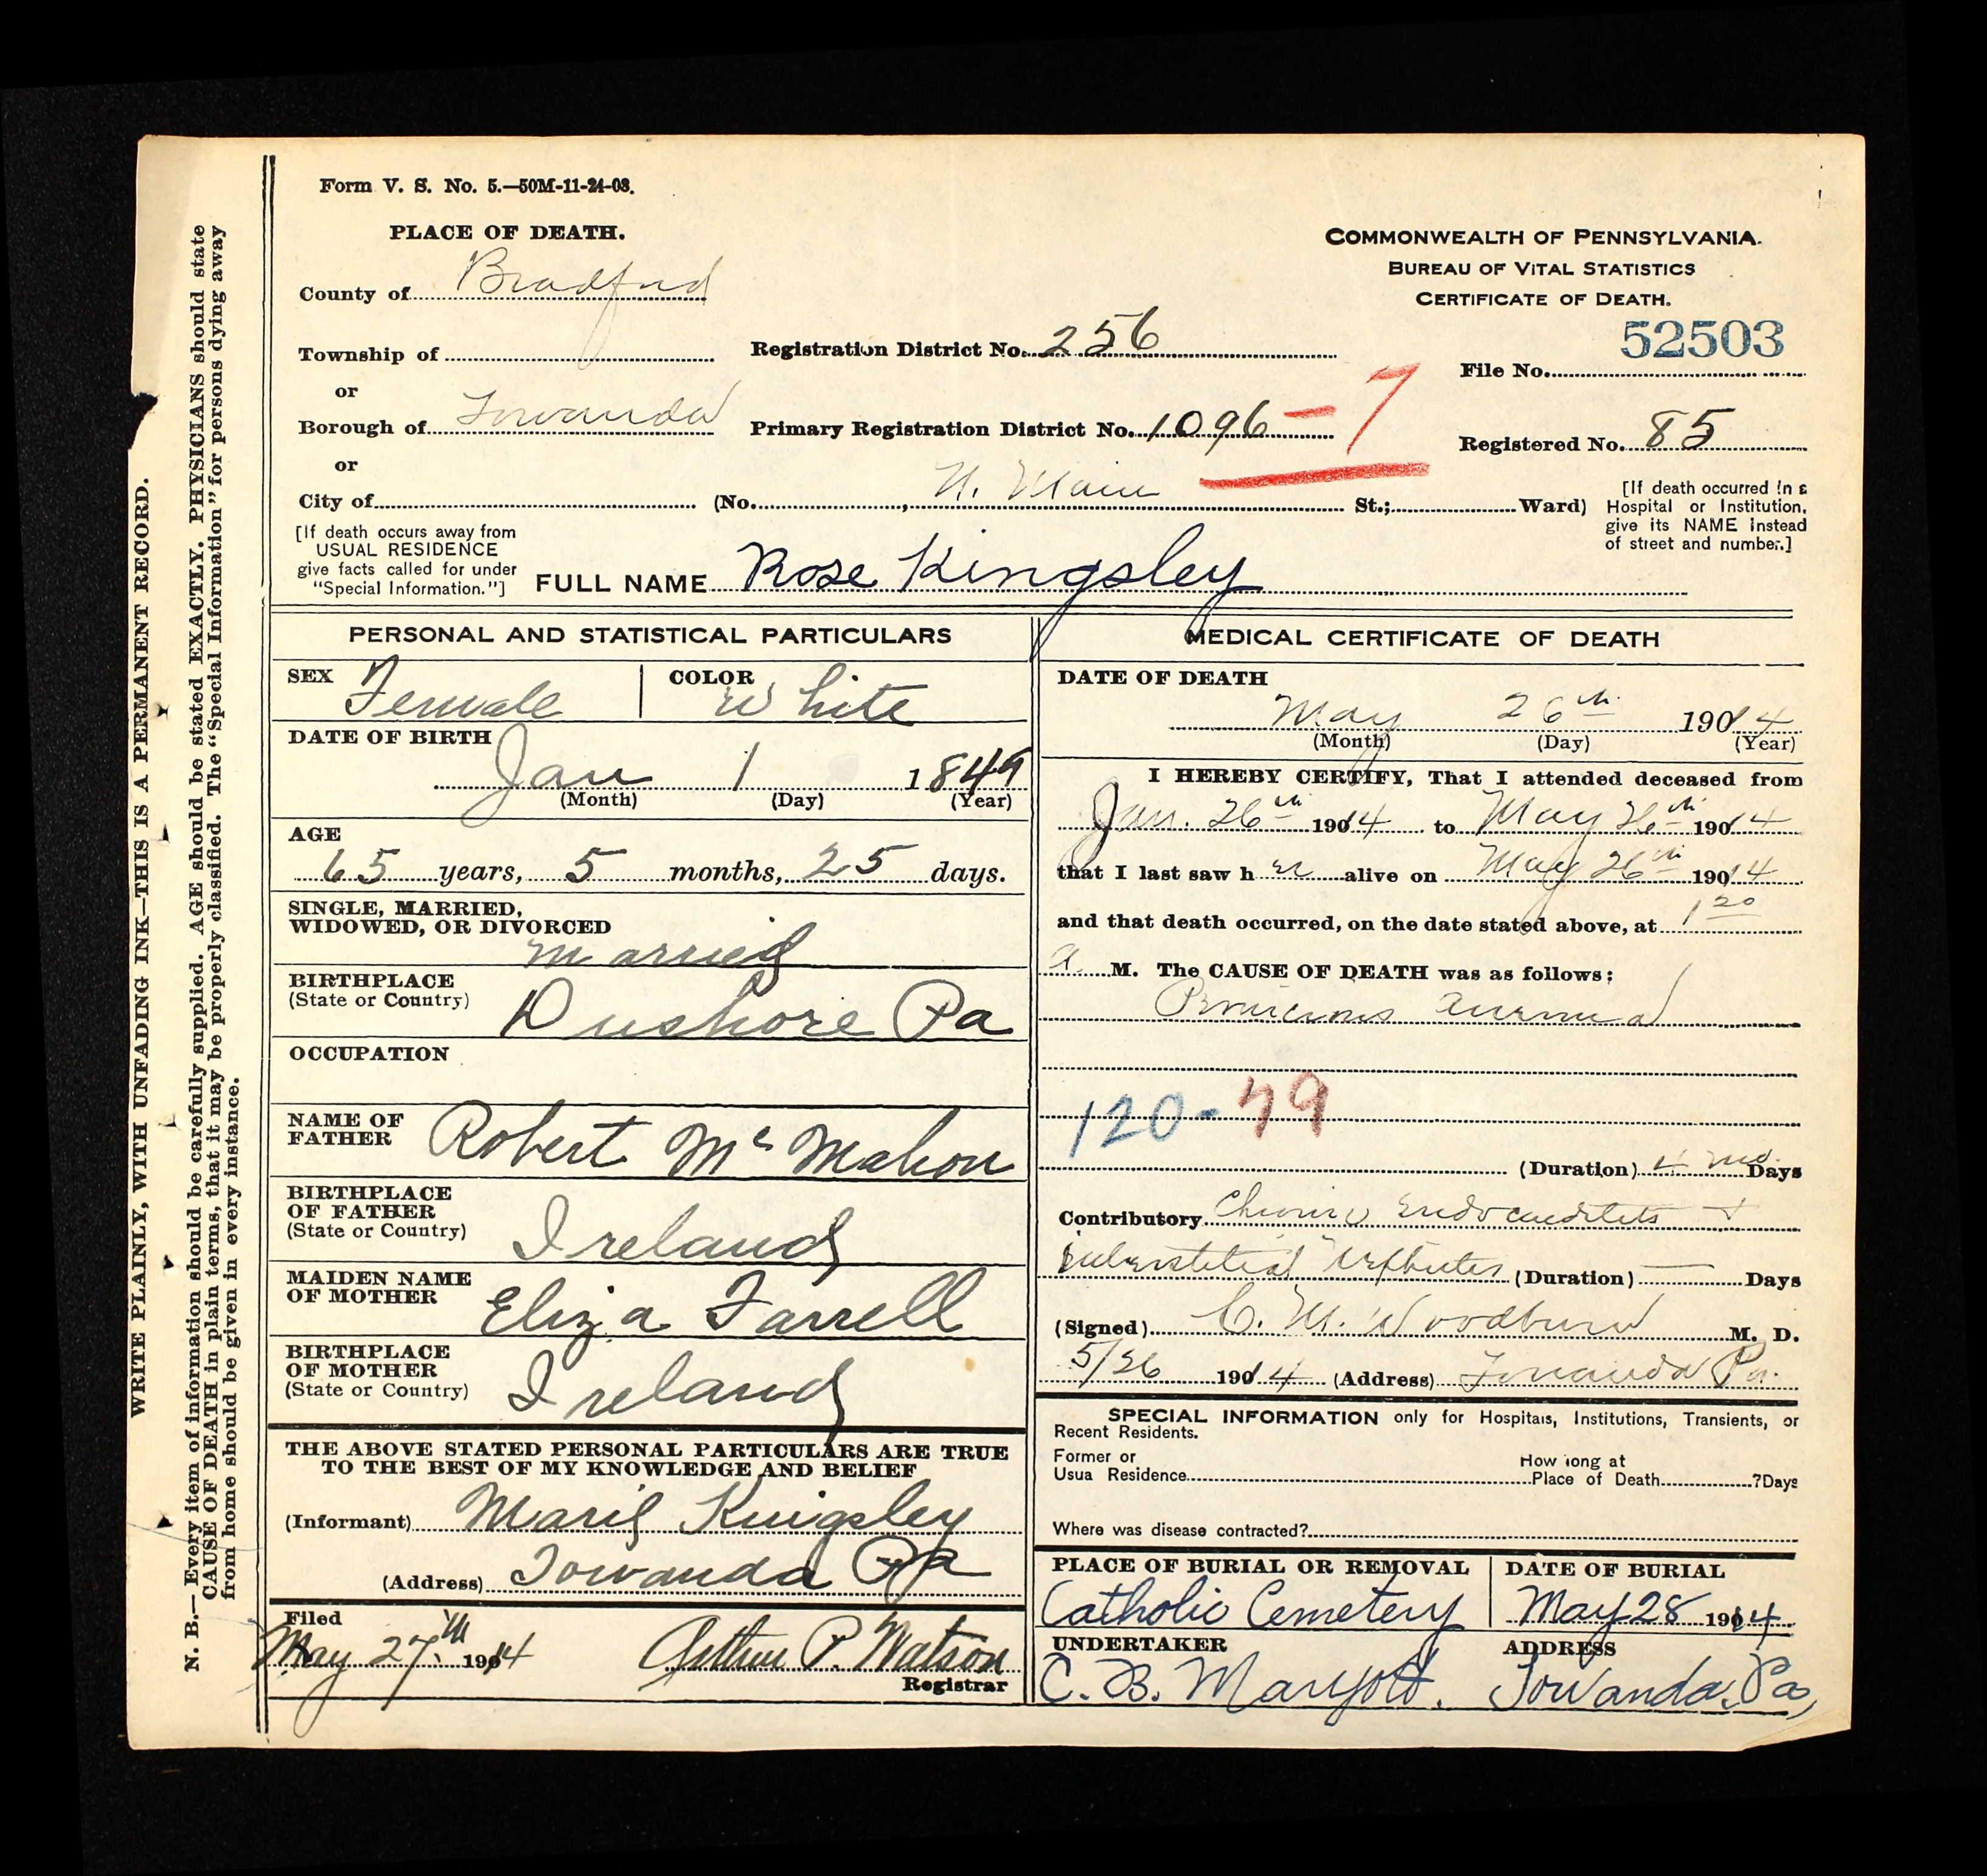 Form V. S. No. 5.—50M-11-24-08.
PLACE OF DEATH.
COMMONWEALTH OF PENNSYLVANIA.
BUREAU OF VITAL STATISTICS
CERTIFICATE OF DEATH.
County of Bradford
52503
Township of
Registration District No. 256
File No.
or
Borough of Towanda
Primary Registration District No. 1096 - 7
Registered No. 85
or
City of (No. , N. Main St.; Ward)
[If death occurred in a
Hospital or Institution,
give its NAME instead
of street and number.]
[If death occurs away from
USUAL RESIDENCE
give facts called for under
"Special Information."]
FULL NAME Rose Kingsley
PERSONAL AND STATISTICAL PARTICULARS
SEX Female
COLOR White
DATE OF BIRTH
Jan 1 1849
(Month) (Day) (Year)
AGE
65 years, 5 months, 25 days.
SINGLE, MARRIED,
WIDOWED, OR DIVORCED
Married
BIRTHPLACE
(State or Country)
Dushore Pa
OCCUPATION
NAME OF
FATHER
Robert McMahon
BIRTHPLACE
OF FATHER
(State or Country)
Ireland
MAIDEN NAME
OF MOTHER
Eliza Farrell
BIRTHPLACE
OF MOTHER
(State or Country)
Ireland
THE ABOVE STATED PERSONAL PARTICULARS ARE TRUE
TO THE BEST OF MY KNOWLEDGE AND BELIEF
(Informant) Kingsley
(Address) Towanda Pa
Filed
May 27th 1914 Arthur P. Watson
Registrar
MEDICAL CERTIFICATE OF DEATH
DATE OF DEATH
May 26th 1914
(Month) (Day) (Year)
I HEREBY CERTIFY, That I attended deceased from
Jan. 26th 1914 to May 26th 1914
that I last saw her alive on May 26th 1914
and that death occurred, on the date stated above, at 1 20
a M. The CAUSE OF DEATH was as follows:
Pernicious Anemia
120-79
(Duration) 4 mo. Days
Contributory Chronic Endocarditis +
Interstitial Nephritis (Duration) — Days
(Signed) C. M. Woodburn M. D.
5/26 1914 (Address) Towanda Pa.
SPECIAL INFORMATION only for Hospitals, Institutions, Transients, or
Recent Residents.
Former or
Usual Residence
How long at
Place of Death ?Days
Where was disease contracted?
PLACE OF BURIAL OR REMOVAL
Catholic Cemetery
DATE OF BURIAL
May 28 1914
UNDERTAKER
C. B.
ADDRESS
Towanda, Pa,
WRITE PLAINLY, WITH UNFADING INK—THIS IS A PERMANENT RECORD.
N. B.—Every item of information should be carefully supplied. AGE should be stated EXACTLY. PHYSICIANS should state
CAUSE OF DEATH in plain terms, that it may be properly classified. The "Special Information" for persons dying away
from home should be given in every instance.